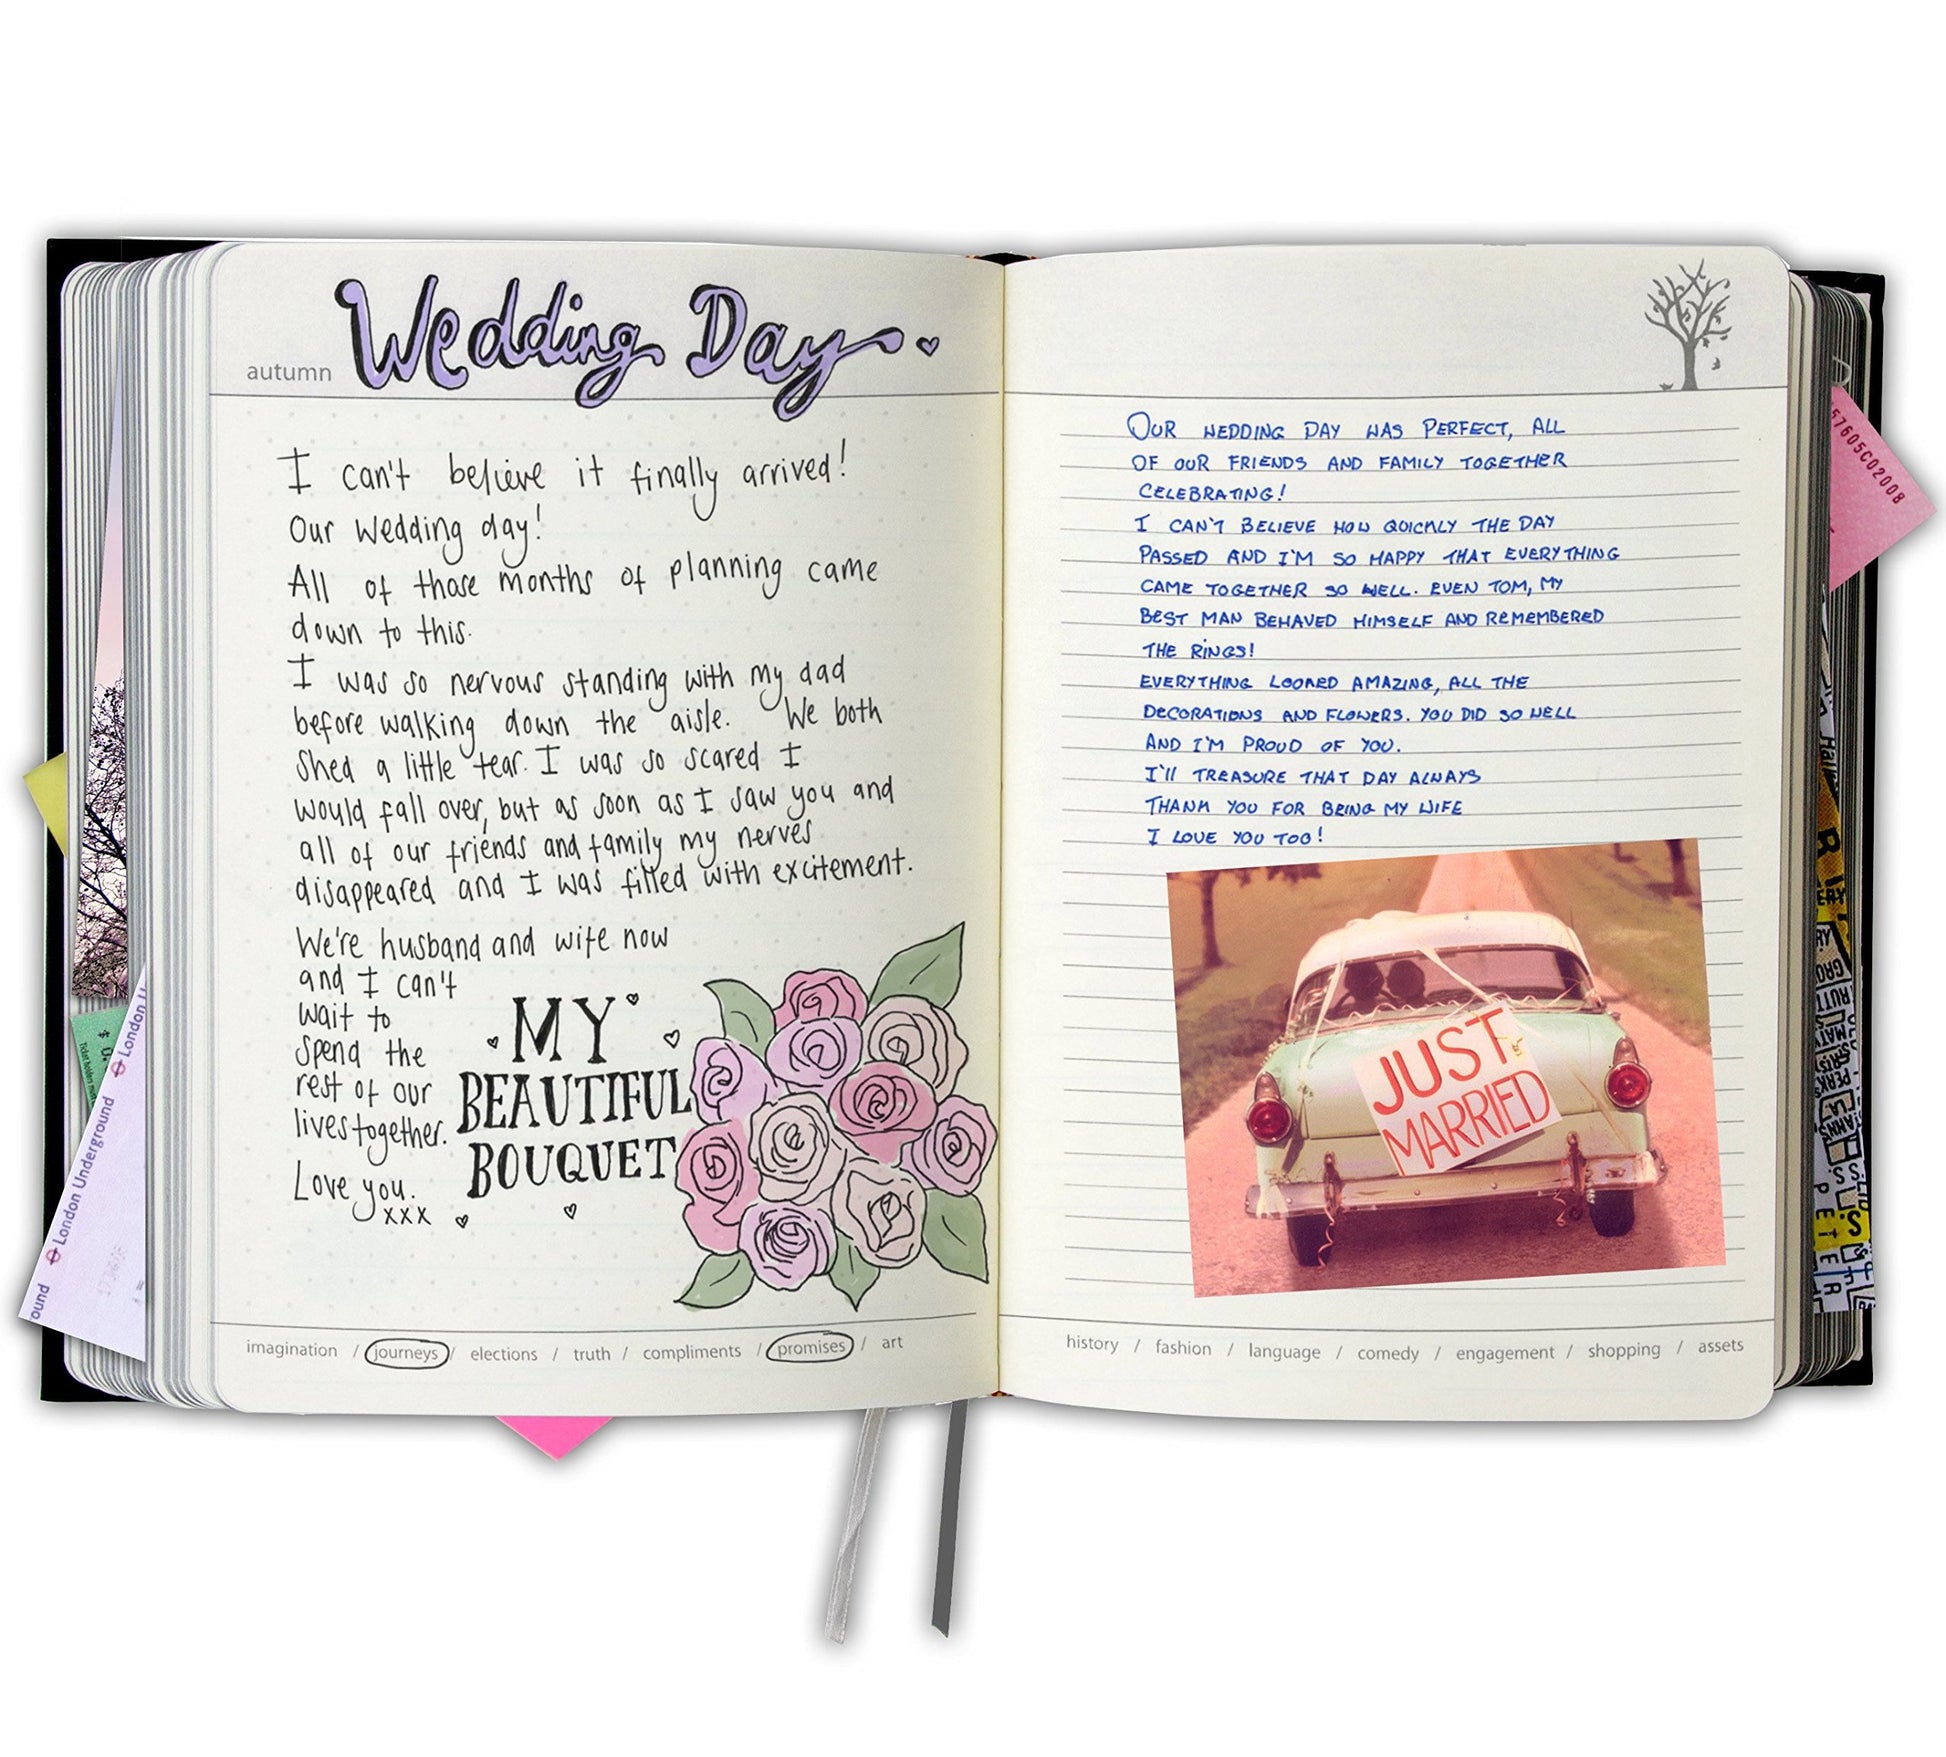 autumn
Wedding Day
I can't believe it finally arrived!
Our wedding day!
All of those months of planning came
down to this.
I was so nervous standing with my dad
before walking down the aisle. We both
shed a little tear. I was so scared I
would fall over, but as soon as I saw you and
all of our friends and family my nerves
disappeared and I was filled with excitement.
We're husband and wife now
and I can't
wait to
spend the
rest of our
lives together.
Love you.
xxx
MY
BEAUTIFUL
BOUQUET
imagination / journeys / elections / truth / compliments / promises / art
OUR WEDDING DAY WAS PERFECT, ALL
OF OUR FRIENDS AND FAMILY TOGETHER
CELEBRATING!
I CAN'T BELIEVE HOW QUICKLY THE DAY
PASSED AND I'M SO HAPPY THAT EVERYTHING
CAME TOGETHER SO WELL. EVEN TOM, MY
BEST MAN BEHAVED HIMSELF AND REMEMBERED
THE RINGS!
EVERYTHING LOOKED AMAZING, ALL THE
DECORATIONS AND FLOWERS. YOU DID SO WELL
AND I'M PROUD OF YOU.
I'll TREASURE THAT DAY ALWAYS
THANK YOU FOR BEING MY WIFE
I LOVE YOU TOO!
JUST
MARRIED
history / fashion / language / comedy / engagement / shopping / assets
London Underground
London U
ound
57605C02008
PETER